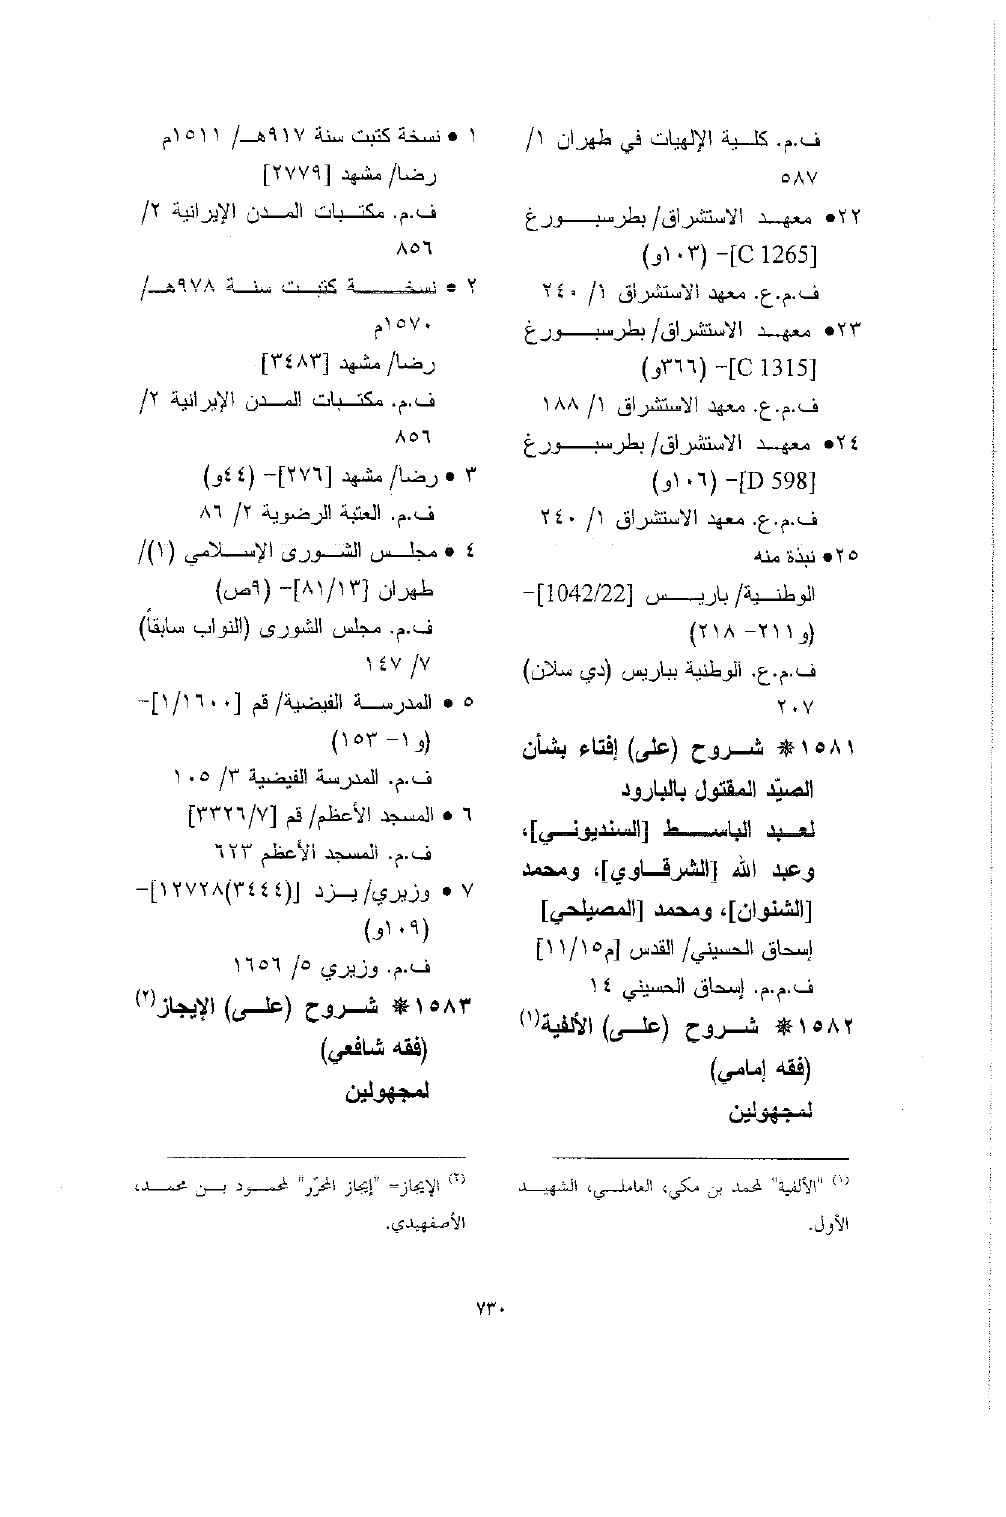 ف.م. كلية الإلهيات في طهران ١/
٥٨٧
٢٢• معهد الاستشراق/ بطرسبورغ
[C 1265]– (١٠٣و)
ف.م.ع. معهد الاستشراق ١/ ٢٤٠
٢٣• معهد الاستشراق/ بطرسبورغ
[C 1315]– (٣٦٦و)
ف.م.ع. معهد الاستشراق ١/ ١٨٨
٢٤• معهد الاستشراق/ بطرسبورغ
[D 598]– (١٠٦و)
ف.م.ع. معهد الاستشراق ١/ ٢٤٠
٢٥• نبذة منه
الوطنية/ باريس [1042/22]–
(و٢١١– ٢١٨)
ف.م.ع. الوطنية بباريس (دي سلان)
٢٠٧
١٥٨١* شروح (على) إفتاء بشأن
الصيّد المقتول بالبارود
لعبد الباسط [السنديوني]،
وعبد الله [الشرقاوي]، ومحمد
[الشنوان]، ومحمد [المصيلحي]
إسحاق الحسيني/ القدس [م١١/١٥]
ف.م.م. إسحاق الحسيني ١٤
١٥٨٢* شروح (على) الألفية(١)
(فقه إمامي)
لمجهولين
(١) "الألفية" لمحمد بن مكي، العاملي، الشهيد
الأول.
١ • نسخة كتبت سنة ٩١٧هـ/ ١٥١١م
رضا/ مشهد [٢٧٧٩]
ف.م. مكتبات المدن الإيرانية ٢/
٨٥٦
٢ • نسخة كتبت سنة ٩٧٨هـ/
١٥٧٠م
رضا/ مشهد [٣٤٨٣]
ف.م. مكتبات المدن الإيرانية ٢/
٨٥٦
٣ • رضا/ مشهد [٢٧٦]– (٤٤و)
ف.م. العتبة الرضوية ٢/ ٨٦
٤ • مجلس الشورى الإسلامي (١)/
طهران [٨١/١٣]– (٩ص)
ف.م. مجلس الشورى (النواب سابقاً)
٧/ ١٤٧
٥ • المدرسة الفيضية/ قم [١/١٦٠٠]–
(و١– ١٥٣)
ف.م. المدرسة الفيضية ٣/ ١٠٥
٦ • المسجد الأعظم/ قم [٣٣٢٦/٧]
ف.م. المسجد الأعظم ٦٢٣
٧ • وزيري/ يزد [(٣٤٤٤)١٢٧٢٨]–
(١٠٩و)
ف.م. وزيري ٥/ ١٦٥٦
١٥٨٣* شروح (على) الإيجاز(٢)
(فقه شافعي)
لمجهولين
(٢) الإيجاز= "إيجاز المحرّر" لمحمود بن محمد،
الأصفهيدي.
٧٣٠